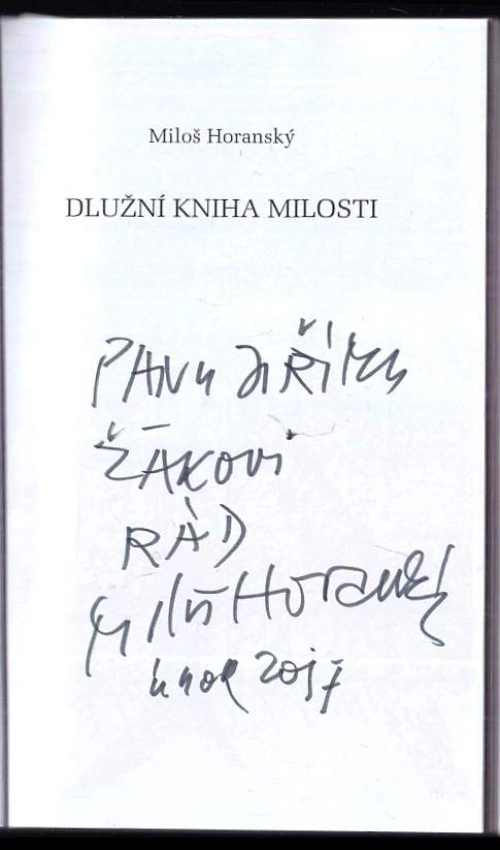 Miloš Horanský
DLUŽNÍ KNIHA MILOSTI
PANU JIŘÍMU
ŽÁKOVI
RÁD
Miloš Horanský
únor 2017